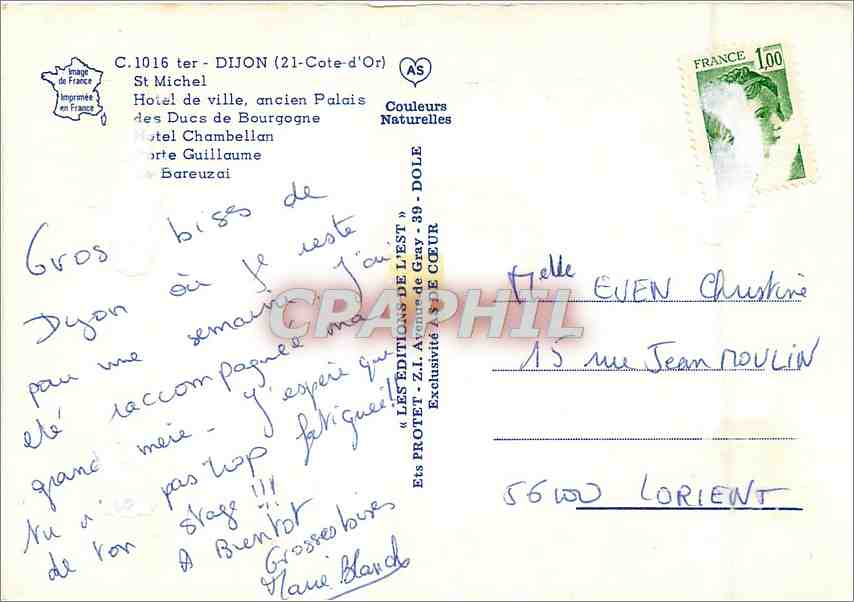 Image
de France
Imprimée
en France
C.1016 ter - DIJON (21-Cote-d'Or)
St Michel
Hotel de ville, ancien Palais
des Ducs de Bourgogne
Hotel Chambellan
orte Guillaume
Bareuzai
AS
Couleurs
Naturelles
FRANCE 1,00
Gros bises de
Dijon où je reste
pour une semaine, j'ai
été raccompagnée ma
grand mère - J'espère que
tu n' pas trop fatiguée!!
de ton stage!!!
A Bientôt
Grosses bises
Marie Blanch
« LES EDITIONS DE L'EST »
Ets PROTET - Z.I. Avenue de Gray - 39 - DOLE
Exclusivité AS DE CŒUR
CPAPHIL
Melle EVEN Christine
15 rue Jean MOULIN
56100 LORIENT